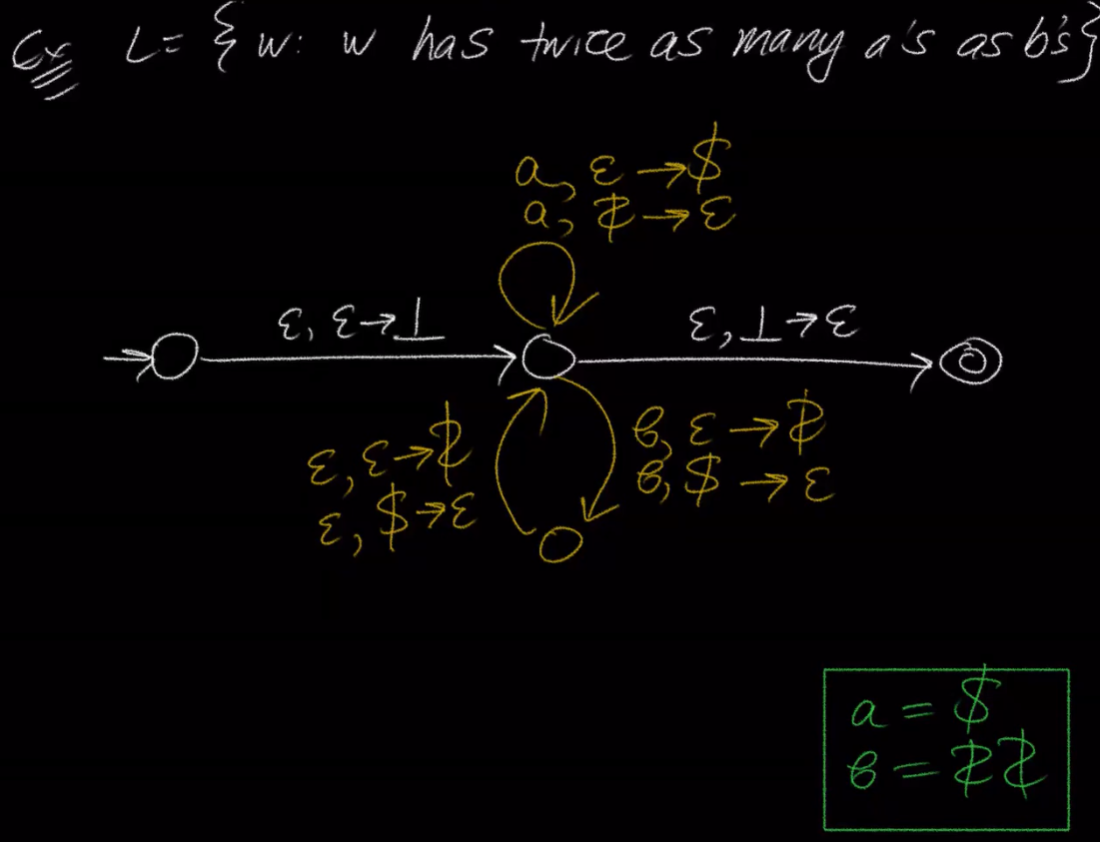 Ex L = { w: w has twice as many a's as b's }
a, ε → $
a, Ꙅ → ε
ε, ε → ⊥
ε, ⊥ → ε
ε, ε → Ꙅ
ε, $ → ε
b, ε → Ꙅ
b, $ → ε
a = $
b = ꙄꙄ